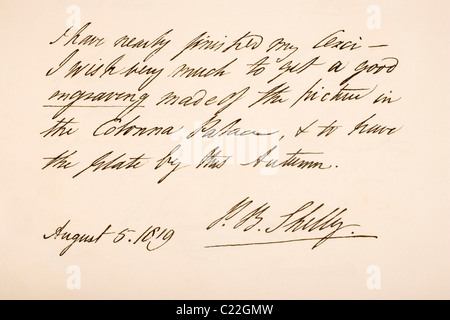 I have nearly finished my Cenci —
I wish very much to get a good
engraving made of the picture in
the Colonna Palace, & to have
the plate by this Autumn.
P. B. Shelley.
August 5. 1819
alamy
Image ID: C22GMW
www.alamy.com